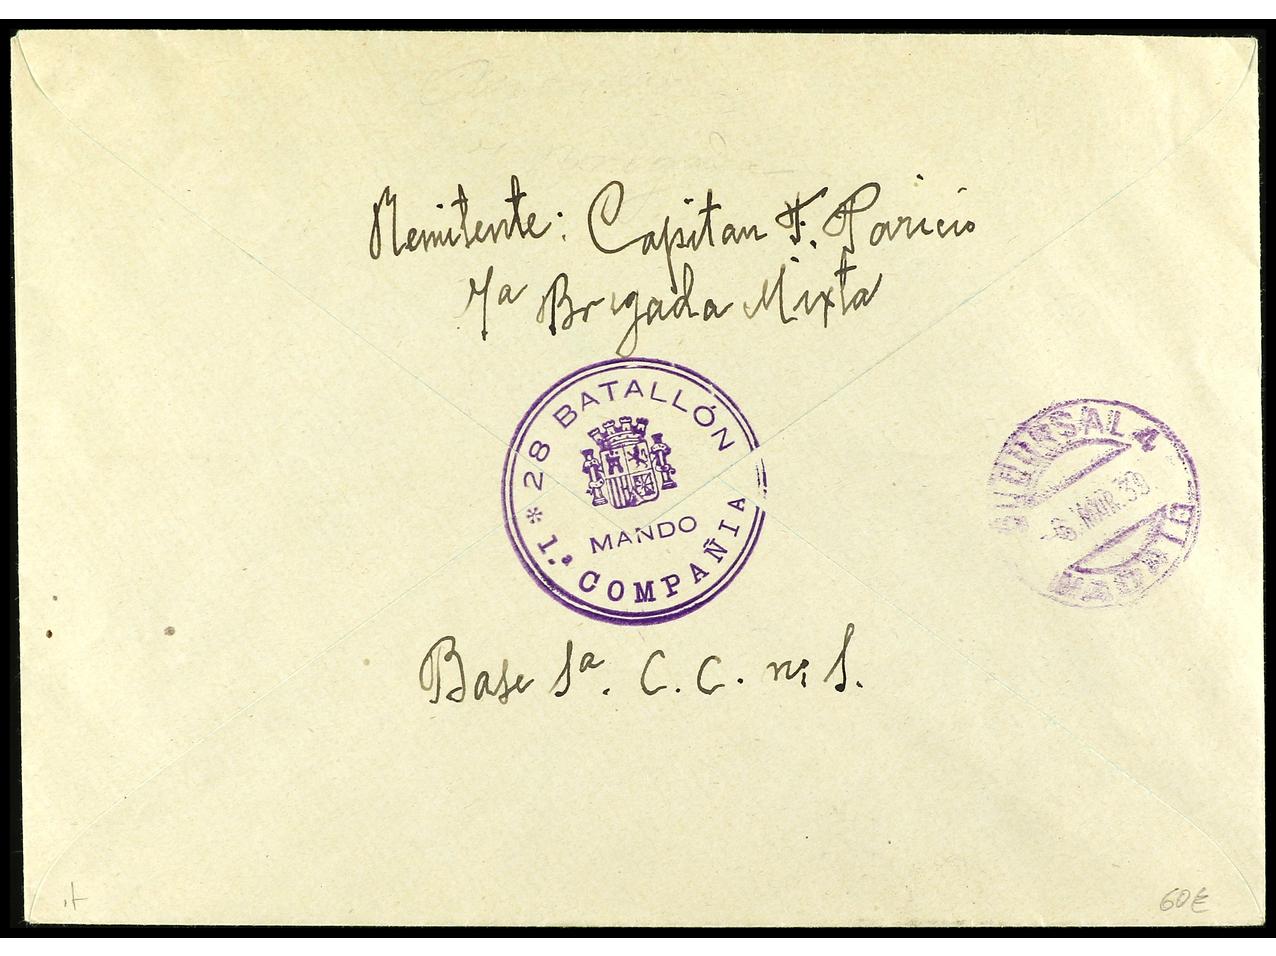 Remitente: Capitan F. Paricio
7ª Brigada Mixta
* 28 BATALLÓN
MANDO
1.ª COMPAÑIA
SUCURSAL 4
-6.MAR.39
MADRID
Base 5ª. C.C. nº 5.
60€